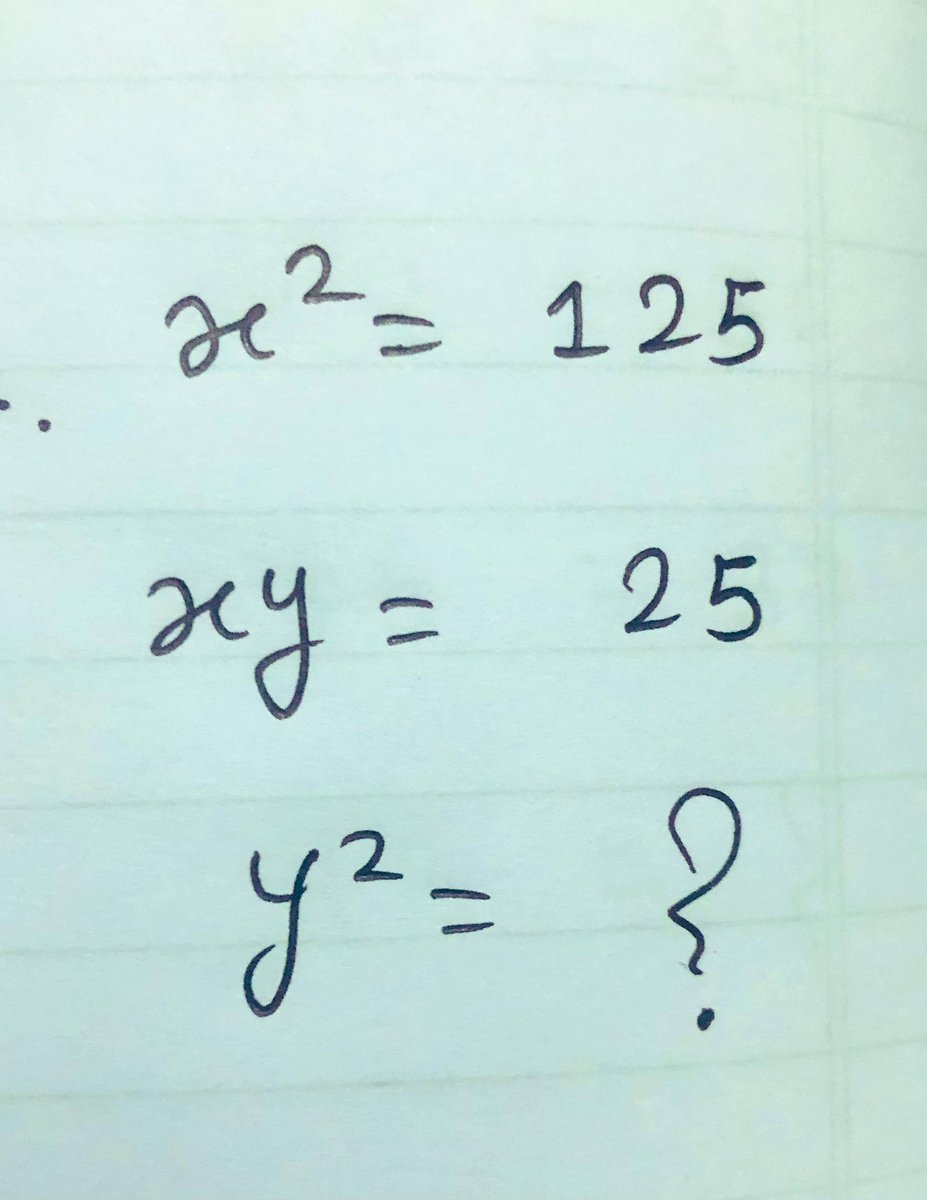 x² = 125
xy = 25
y² = ?